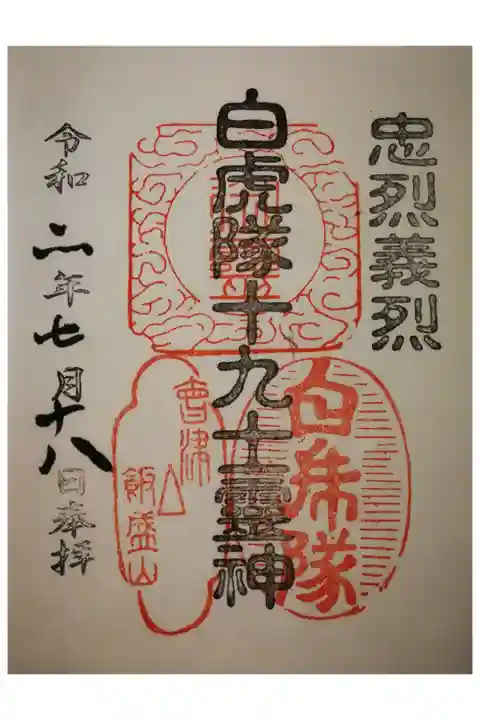 忠烈義烈
白虎隊十九士霊神
令和二年七月十八日奉拝
白虎隊
會津
飯盛山